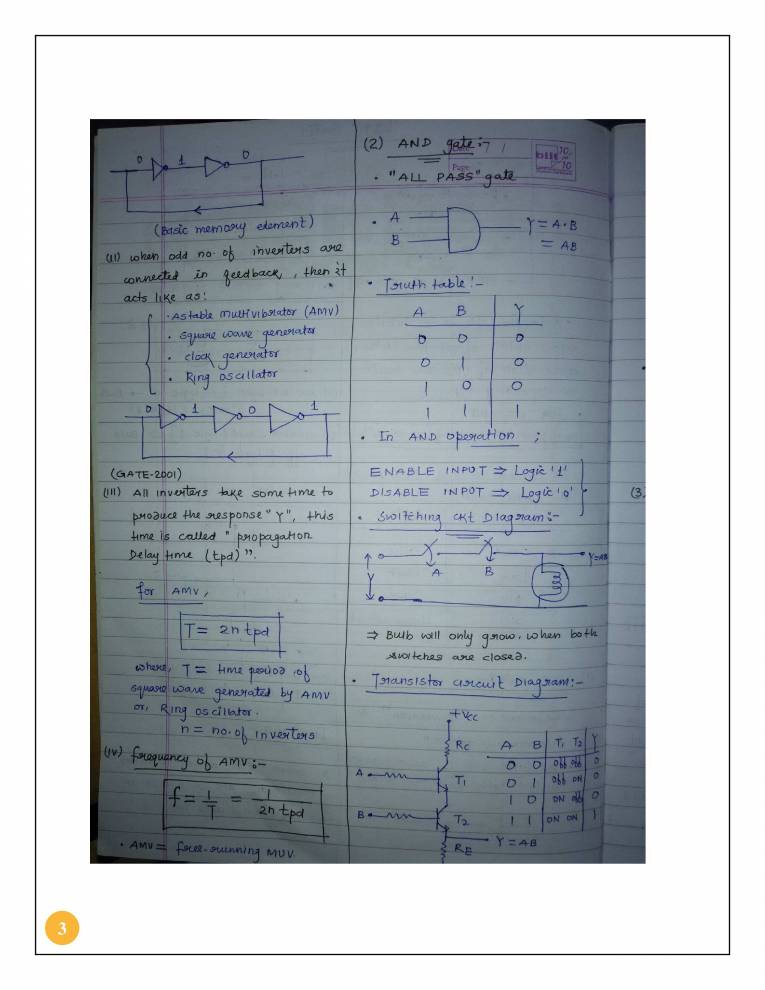 0 1 0
(Basic memory element)
(ii) when odd no. of inverters are
connected in feedback, then it
acts like as:
• Astable multivibrator (AMV)
• square wave generator
• clock generator
• Ring oscillator
0 1 0 1
(GATE-2001)
(iii) All inverters take some time to
produce the response "Y", this
time is called "propagation
Delay time (tpd)".
for AMV,
T = 2n tpd
where, T = time period of
square wave generated by AMV
or, Ring oscillator.
n = no. of inverters
(iv) frequency of AMV:-
f = 1/T = 1/2n tpd
• AMV = free-running MUV.
(2) AND gate:-
Page
• "ALL PASS" gate
• A
B
Y = A·B
= AB
• Truth table:-
A B Y
0 0 0
0 1 0
1 0 0
1 1 1
• In AND operation ;
ENABLE INPUT ⇒ Logic '1'
DISABLE INPUT ⇒ Logic '0'
• Switching ckt Diagram:-
A B
Y=AB
V
⇒ Bulb will only grow, when both
switches are closed.
• Transistor circuit Diagram:-
+Vcc
Rc
A
T1
B
T2
Y = AB
RE
A B T1 T2 Y
0 0 off off 0
0 1 off ON 0
1 0 ON off 0
1 1 ON ON 1
(3.
3